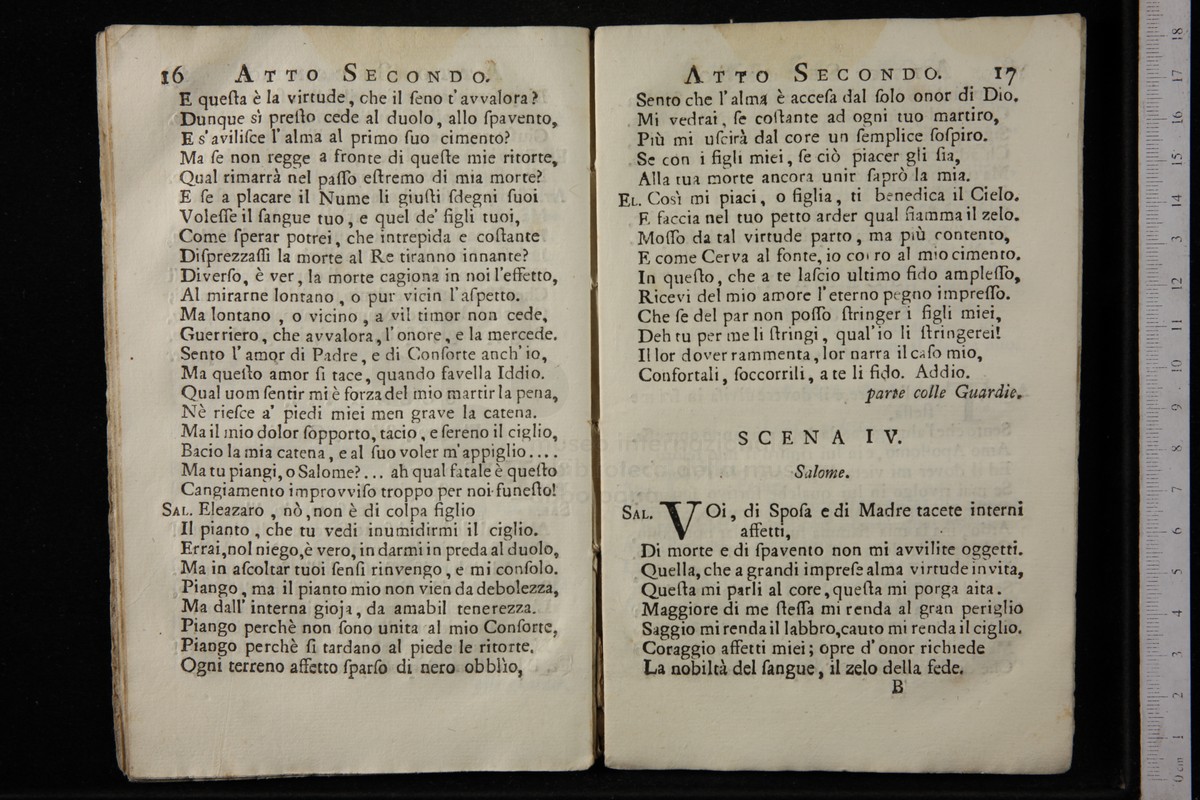 16 ATTO SECONDO.
E queſta è la virtude, che il ſeno t'avvalora?
Dunque sì preſto cede al duolo, allo ſpavento,
E s'aviliſce l'alma al primo ſuo cimento?
Ma ſe non regge a fronte di queſte mie ritorte,
Qual rimarrà nel paſſo eſtremo di mia morte?
E ſe a placare il Nume li giuſti ſdegni ſuoi
Voleſſe il ſangue tuo, e quel de' figli tuoi,
Come ſperar potrei, che intrepida e coſtante
Diſprezzaſſi la morte al Re tiranno innante?
Diverſo, è ver, la morte cagiona in noi l'effetto,
Al mirarne lontano, o pur vicin l'aſpetto.
Ma lontano, o vicino, a vil timor non cede,
Guerriero, che avvalora, l'onore, e la mercede.
Sento l'amor di Padre, e di Conſorte anch'io,
Ma queſto amor ſi tace, quando favella Iddio.
Qual uom ſentir mi è forza del mio martir la pena,
Nè rieſce a' piedi miei men grave la catena.
Ma il mio dolor ſopporto, tacio, e ſereno il ciglio,
Bacio la mia catena, e al ſuo voler m'appiglio....
Ma tu piangi, o Salome?... ah qual fatale è queſto
Cangiamento improvviſo troppo per noi funeſto!
SAL. Eleazaro, nò, non è di colpa figlio
Il pianto, che tu vedi inumidirmi il ciglio.
Errai, nol niego, è vero, in darmi in preda al duolo,
Ma in aſcoltar tuoi ſenſi rinvengo, e mi conſolo.
Piango, ma il pianto mio non vien da debolezza,
Ma dall'interna gioja, da amabil tenerezza.
Piango perchè non ſono unita al mio Conſorte,
Piango perchè ſi tardano al piede le ritorte.
Ogni terreno affetto ſparſo di nero obblìo,
ATTO SECONDO. 17
Sento che l'alma è acceſa dal ſolo onor di Dio.
Mi vedrai, ſe coſtante ad ogni tuo martiro,
Più mi uſcirà dal core un ſemplice ſoſpiro.
Se con i figli miei, ſe ciò piacer gli ſia,
Alla tua morte ancora unir ſaprò la mia.
EL. Così mi piaci, o figlia, ti benedica il Cielo.
E faccia nel tuo petto arder qual fiamma il zelo.
Moſſo da tal virtude parto, ma più contento,
E come Cerva al fonte, io corro al mio cimento.
In queſto, che a te laſcio ultimo fido ampleſſo,
Ricevi del mio amore l'eterno pegno impreſſo.
Che ſe del par non poſſo ſtringer i figli miei,
Deh tu per me li ſtringi, qual'io li ſtringerei!
Il lor dover rammenta, lor narra il caſo mio,
Confortali, ſoccorrili, a te li fido. Addio.
parte colle Guardie.
SCENA IV.
Salome.
SAL. VOi, di Spoſa e di Madre tacete interni
affetti,
Di morte e di ſpavento non mi avvilite oggetti.
Quella, che a grandi impreſe alma virtude invita,
Queſta mi parli al core, queſta mi porga aita.
Maggiore di me ſteſſa mi renda al gran periglio
Saggio mi renda il labbro, cauto mi renda il ciglio.
Coraggio affetti miei; opre d'onor richiede
La nobiltà del ſangue, il zelo della fede.
B